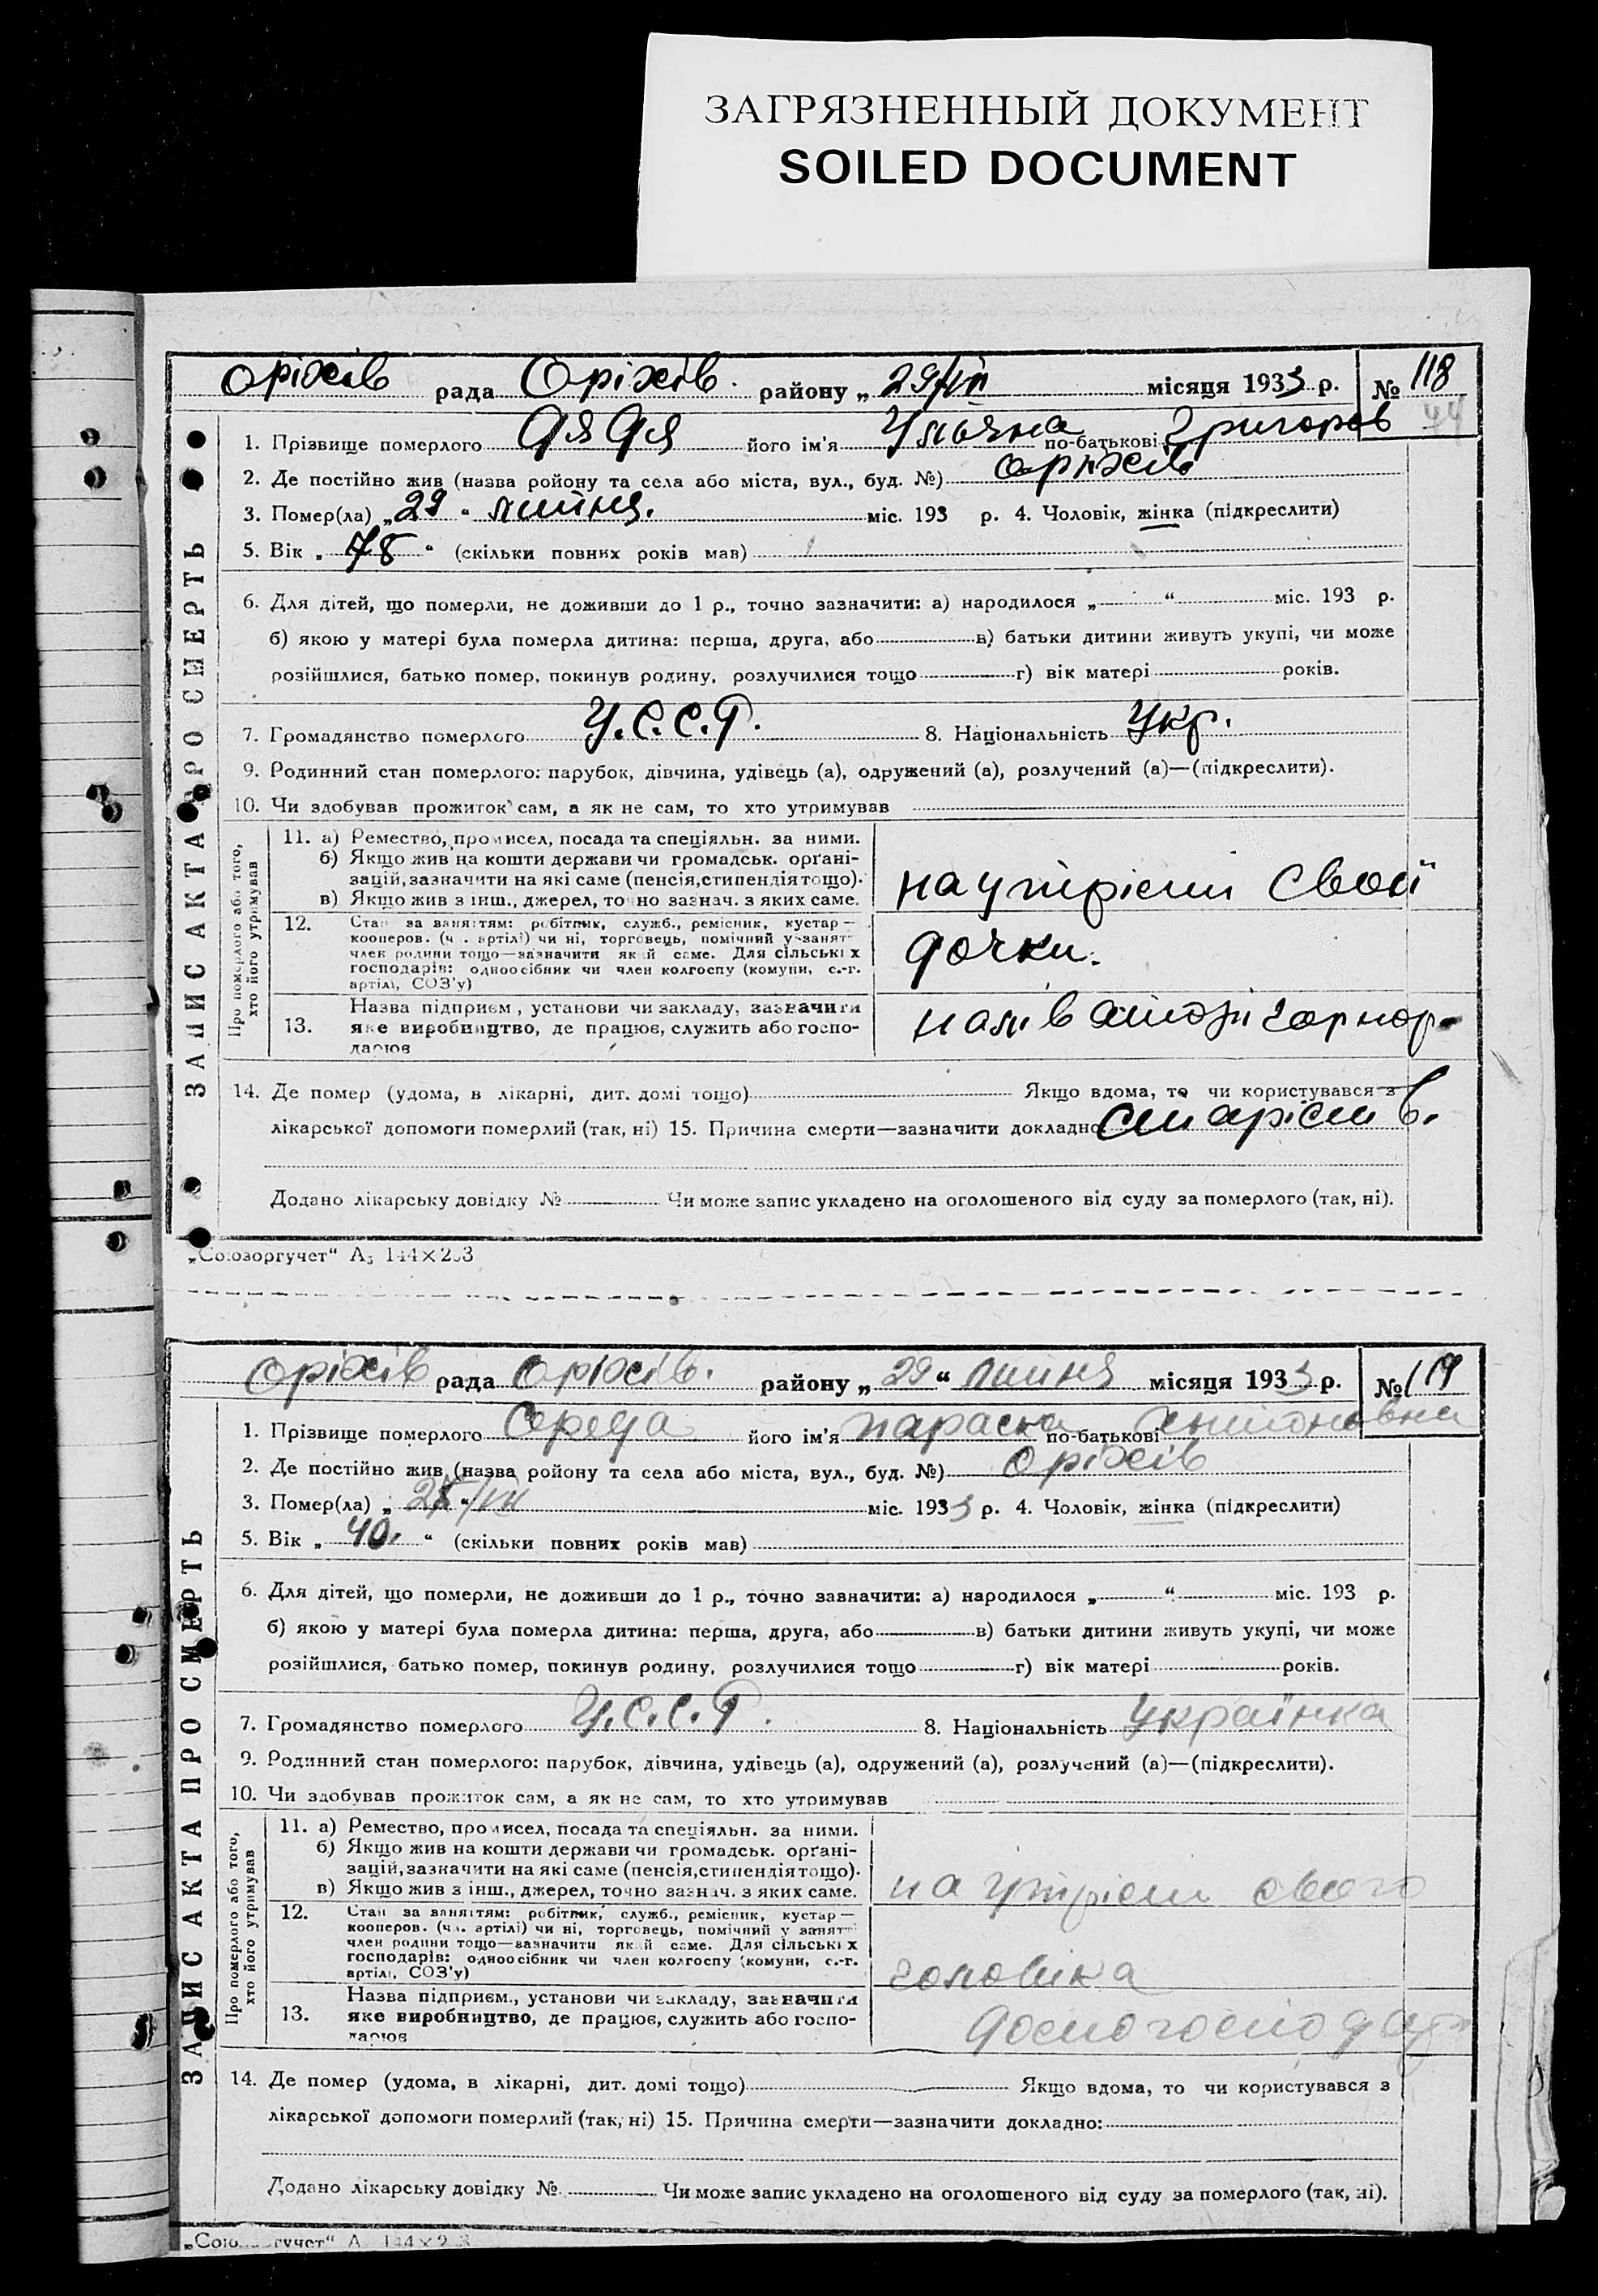 ЗАГРЯЗНЕННЫЙ ДОКУМЕНТ
SOILED DOCUMENT
Оріхів рада Оріхів. району „ 29/VII місяця 1933 р. № 118
44
1. Прізвище померлого Дядя його ім'я Ульяна по-батькові Григоров
2. Де постійно жив (назва ройону та села або міста, вул., буд. №) Оріхів
3. Помер(ла) „ 29 “ липня. міс. 193 р. 4. Чоловік, жінка (підкреслити)
5. Вік „ 78 “ (скільки повних років мав)
6. Для дітей, що померли, не доживши до 1 р., точно зазначити: а) народилося „ “ міс. 193 р.
б) якою у матері була померла дитина: перша, друга, або в) батьки дитини живуть укупі, чи може
розійшлися, батько помер, покинув родину, розлучилися тощо г) вік матері років.
7. Громадянство померлого У.С.С.Р. 8. Національність Укр.
9. Родинний стан померлого: парубок, дівчина, удівець (а), одружений (а), розлучений (а)—(підкреслити).
10. Чи здобував прожиток сам, а як не сам, то хто утримував
ЗАПИС АКТА ПРО СМЕРТЬ
Про померлого або того,
хто його утримував
11. а) Ремество, промисел, посада та спеціяльн. за ними.
б) Якщо жив на кошти держави чи громадськ. орґані-
зацій, зазначити на які саме (пенсія, стипендія тощо).
в) Якщо жив з інш., джерел, точно зазнач. з яких саме.
на утрієми своєї
12. Стан за заняттям: робітник, служб., ремісник, кустар—
кооперов. (чл. артілі) чи ні, торговець, помічний у занятті
член родини тощо—зазначити який саме. Для сільських
господарів: одноосібник чи член колгоспу (комуни, с.-г.
артілі, СОЗ'у)
дочки.
13. Назва підприєм., установи чи закладу, зазначити
яке виробництво, де працює, служить або госпо-
дарює
14. Де помер (удома, в лікарні, дит. домі тощо) Якщо вдома, то чи користувався з
лікарської допомоги померлий (так, ні) 15. Причина смерти—зазначити докладно: старість.
Додано лікарську довідку № Чи може запис укладено на оголошеного від суду за померлого (так, ні).
„Союзоргучет“ А5 144×203
Оріхів рада Оріхів. району „ 29 “ липня місяця 1933 р. № 119
1. Прізвище померлого Середа його ім'я Параска по-батькові Антоновна
2. Де постійно жив (назва ройону та села або міста, вул., буд. №) Оріхів
3. Помер(ла) „ 28 “/VII міс. 1933 р. 4. Чоловік, жінка (підкреслити)
5. Вік „ 40. “ (скільки повних років мав)
6. Для дітей, що померли, не доживши до 1 р., точно зазначити: а) народилося „ “ міс. 193 р.
б) якою у матері була померла дитина: перша, друга, або в) батьки дитини живуть укупі, чи може
розійшлися, батько помер, покинув родину, розлучилися тощо г) вік матері років.
7. Громадянство померлого У.С.С.Р. 8. Національність Українка
9. Родинний стан померлого: парубок, дівчина, удівець (а), одружений (а), розлучений (а)—(підкреслити).
10. Чи здобував прожиток сам, а як не сам, то хто утримував
ЗАПИС АКТА ПРО СМЕРТЬ
Про померлого або того,
хто його утримував
11. а) Ремество, промисел, посада та спеціяльн. за ними.
б) Якщо жив на кошти держави чи громадськ. орґані-
зацій, зазначити на які саме (пенсія, стипендія тощо).
в) Якщо жив з інш., джерел, точно зазнач. з яких саме.
на утрієми свого
12. Стан за заняттям: робітник, служб., ремісник, кустар—
кооперов. (чл. артілі) чи ні, торговець, помічний у занятті
член родини тощо—зазначити який саме. Для сільських
господарів: одноосібник чи член колгоспу (комуни, с.-г.
артілі, СОЗ'у)
чоловіка
13. Назва підприєм., установи чи закладу, зазначити
яке виробництво, де працює, служить або госпо-
дарює
14. Де помер (удома, в лікарні, дит. домі тощо) Якщо вдома, то чи користувався з
лікарської допомоги померлий (так, ні) 15. Причина смерти—зазначити докладно:
Додано лікарську довідку № Чи може запис укладено на оголошеного від суду за померлого (так, ні).
„Союзоргучет“ А 144×203